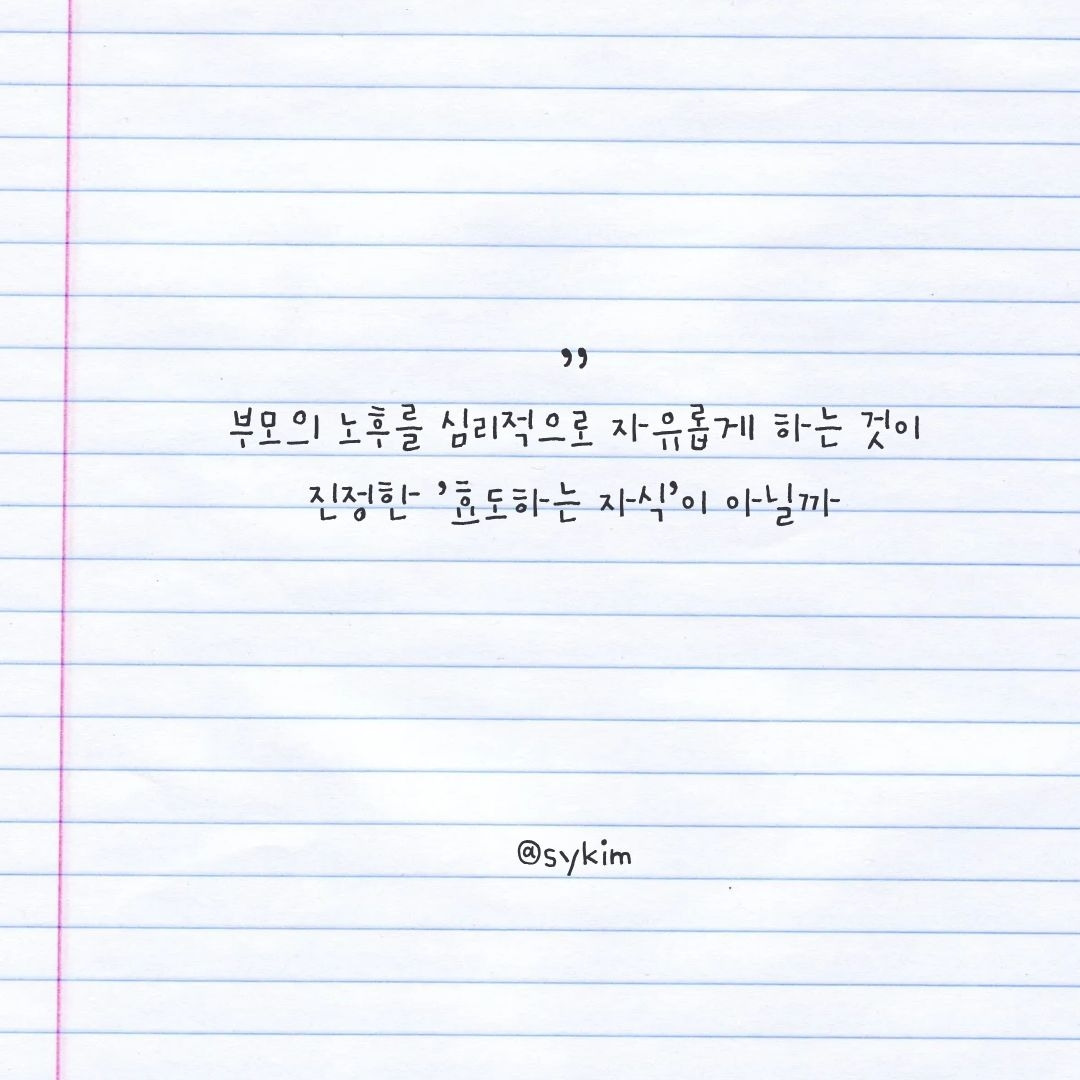 ”
부모의 노후를 심리적으로 자유롭게 하는 것이
진정한 ’효도하는 자식’이 아닐까
@sykim